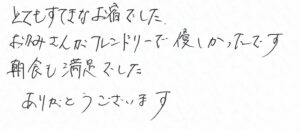 とてもすてきなお宿でした。
おかみさんがフレンドリーで優しかったです
朝食も満足でした
ありがとうございます